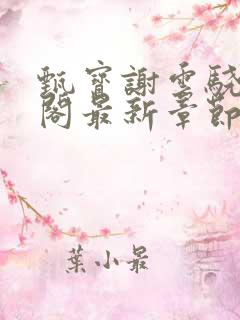 甄寶謝雲驍
閣最新章節
葉小最